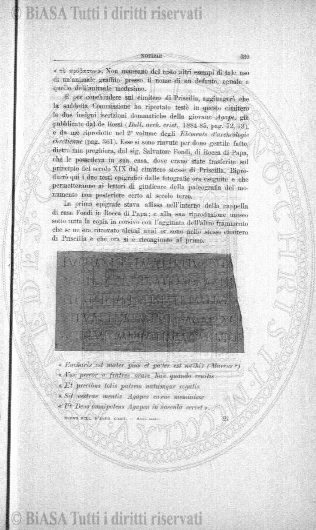 © BiASA Tutti i diritti riservati
NOTIZIE 339
« τι προβατον». Non mancano del resto altri esempi di tale uso
di un animale graffito presso il nome di un defunto, eguale a
quello dell'animale medesimo.
E per conchiudere sul cimitero di Priscilla, aggiungerò che
la suddetta Commissione ha riportato testè in questo cimitero
le due insigni iscrizioni dommatiche della giovane Agape, già
pubblicate dal de Rossi (Bull. arch. crist., 1884-85, pag. 72, 73),
e da me riprodotte nel 2° volume degli Elementi d'archeologia
christiana (pag. 361). Esse si sono riavute per dono gentile fatto,
dietro mia preghiera, dal sig. Salvatore Fondi, di Rocca di Papa,
che le possedeva in sua casa, dove erano state trasferite sul
principio del secolo XIX dal cimitero stesso di Priscilla. Ripro-
durrò qui i due testi epigrafici dalle fotografie ora eseguite e che
permetteranno ai lettori di giudicare della paleografia del mo-
numento non posteriore certo al secolo terzo.
La prima epigrafe stava affissa nell'interno della cappella
di casa Fondi in Rocca di Papa; e alla sua riproduzione unisco
sotto tutta la copia in corsivo con l'aggiunta dell'altro frammento
che se ne era ritrovato alcuni anni or sono nello stesso cimitero
di Priscilla e che ora si è ricongiunto al primo.
« Eucharis est mater pius et pater est mihi(s) (Marcus?)
« Vos precor o fratres orare huc quando venitis
« Et precibus totis patrem natumque rogatis
« Sit vestrae mentis Agapes carae meminisse
« Ut Deus omnipotens Agapen in saecula servet ».
© BiASA Tutti i diritti riservati